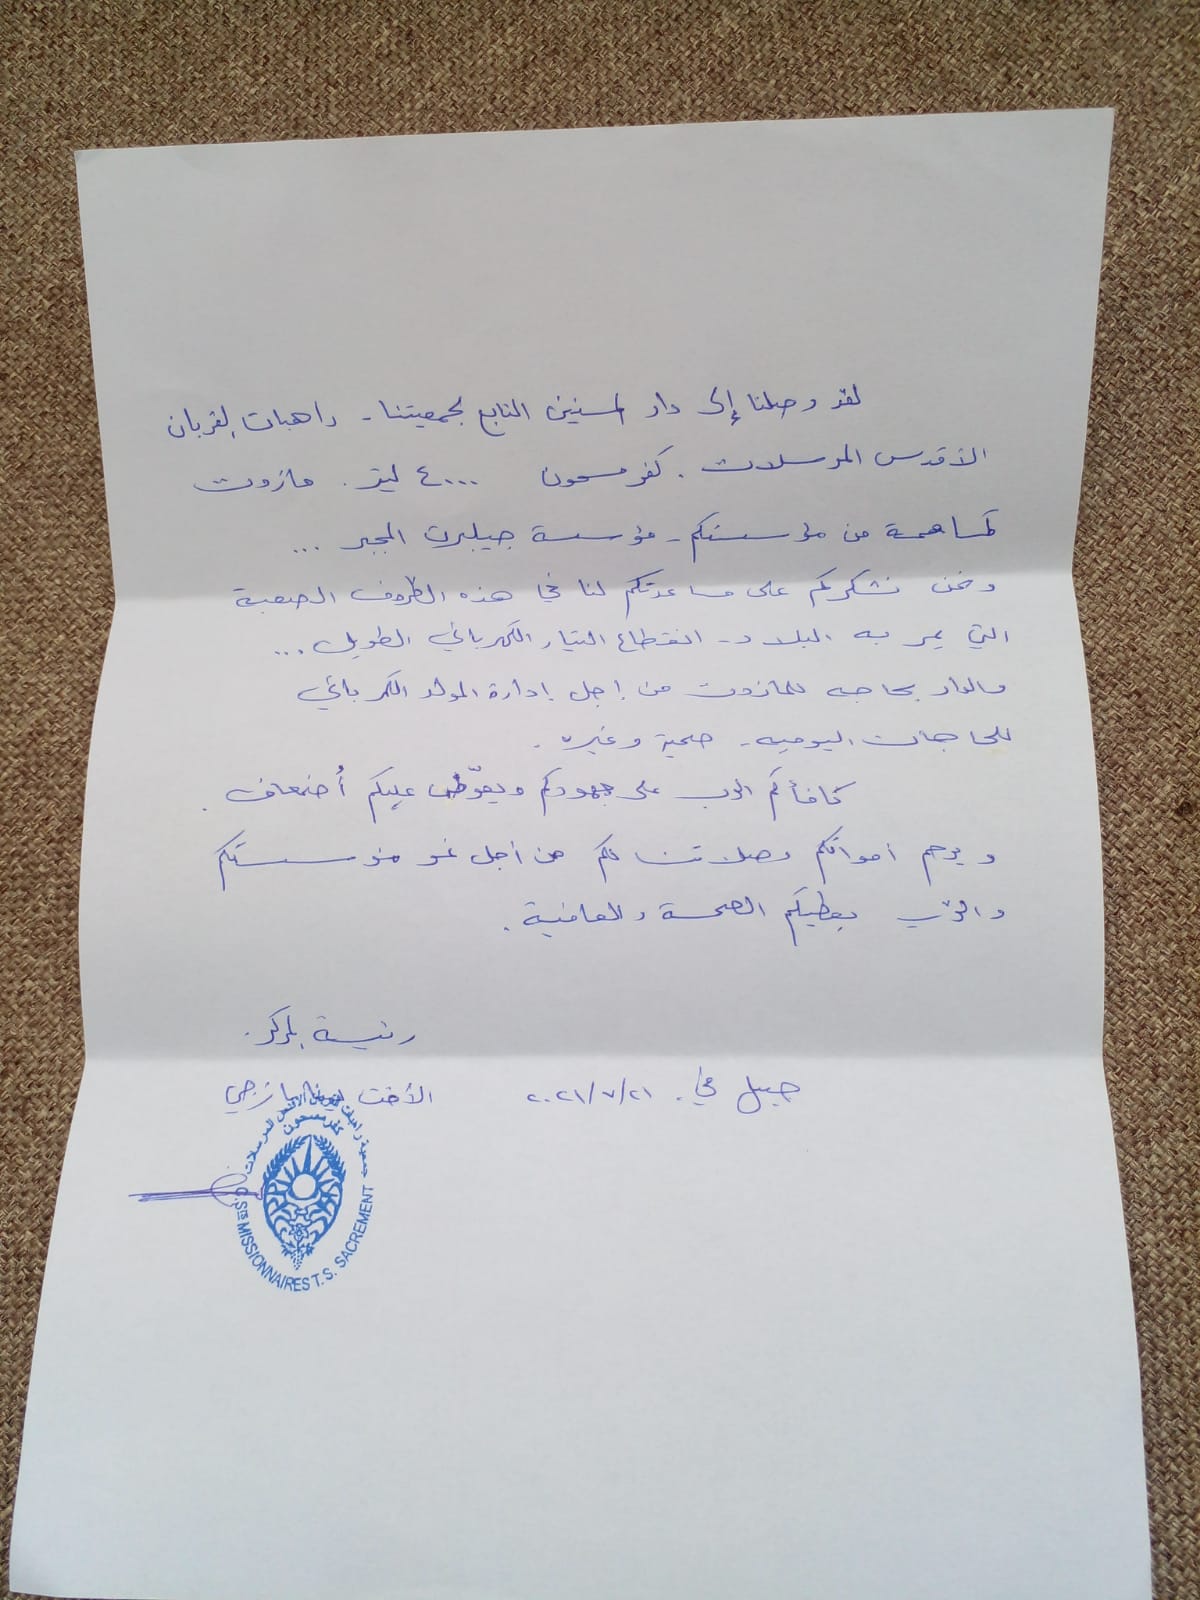 لقد وصلنا إلى دار المسنين التابع لجمعيتنا - راهبات القربان
الأقدس المرسلات . كفرمسحون ٤٠٠٠ ليتر . مازوت
كمساهمة من مؤسستكم - مؤسسة جيلبرت المجبر ...
ونحن نشكركم على مساعدتكم لنا في هذه الظروف الصعبة
التي يمر به البلاد - انقطاع التيار الكهربائي الطويل ...
والدار بحاجه للمازوت من اجل إدارة المولد الكهربائي
للحاجات اليوميه - صحية وغيره .
كافأكم الرب على جهودكم ويعوّض عليكم أضعاف .
ويرحم امواتكم وصلاتنا لكم من أجل نمو مؤسستكم
والرب يعطيكم الصحة والعافية .
رئيسة المركز .
جبيل في . ٢٠٢١/٧/٢١ الأخت
جمعية راهبات القربان الأقدس المرسلات
كفرمسحون
C. STS MISSIONNAIRES T. S. SACREMENT